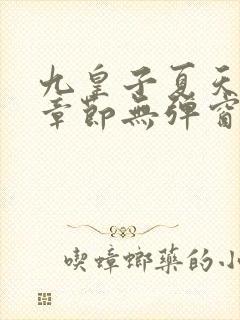 九皇子夏天
章節無彈窗
喫蟑螂藥的小